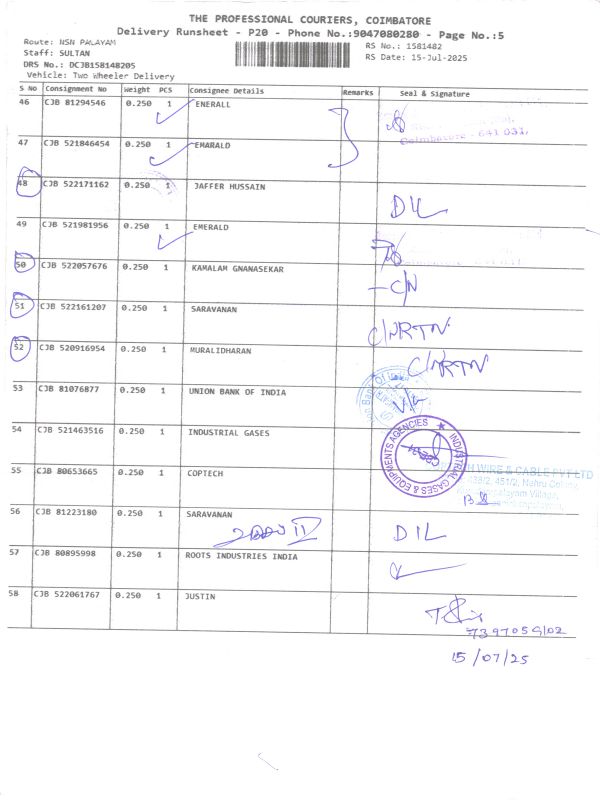 THE PROFESSIONAL COURIERS, COIMBATORE
Delivery Runsheet - P20 - Phone No.:9047080280 - Page No.:5
Route: NSN PALAYAM
RS No.: 1581482
Staff: SULTAN
RS Date: 15-Jul-2025
DRS No.: DCJB158148205
Vehicle: Two Wheeler Delivery
S No Consignment No Weight PCS Consignee Details Remarks Seal & Signature
46 CJB 81294546 0.250 1 ENERALL
Coimbatore - 641 031.
47 CJB 521846454 0.250 1 EMARALD
48 CJB 522171162 0.250 1 JAFFER HUSSAIN
D/L
49 CJB 521981956 0.250 1 EMERALD
50 CJB 522057676 0.250 1 KAMALAM GNANASEKAR
C/N
51 CJB 522161207 0.250 1 SARAVANAN
C/NRTN
52 CJB 520916954 0.250 1 MURALIDHARAN
C/NRTN
53 CJB 81076877 0.250 1 UNION BANK OF INDIA
54 CJB 521463516 0.250 1 INDUSTRIAL GASES
INDUSTRIAL GASES & EQUIPMENTS AGENCIES
55 CJB 80653665 0.250 1 COPTECH
WIRE & CABLE PVT LTD
438/2, 451/2, Nehru
Village,
56 CJB 81223180 0.250 1 SARAVANAN
D/L
57 CJB 80895998 0.250 1 ROOTS INDUSTRIES INDIA
58 CJB 522061767 0.250 1 JUSTIN
15/07/25